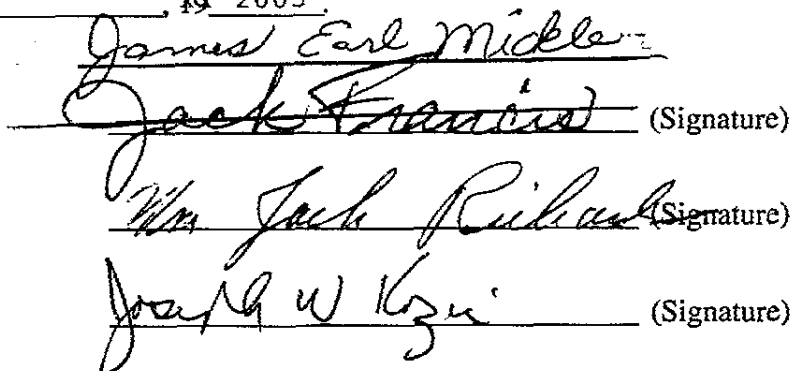 , 19 2003.
James Earl Mickle
Jack Francis (Signature)
Wm Jack (Signature)
Joseph W (Signature)